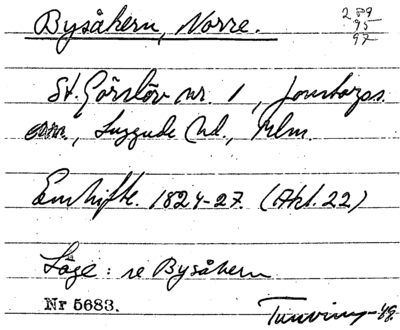 Bysåkern, Norre.
289
95
97
St. Görslöv nr. 1, Jonstorps
sn., Luggude hd., Mlm.
Enskifte. 1824-27. (Akt. 22)
Läge: se Bysåkern
Nr 5683.
Tunving -49.